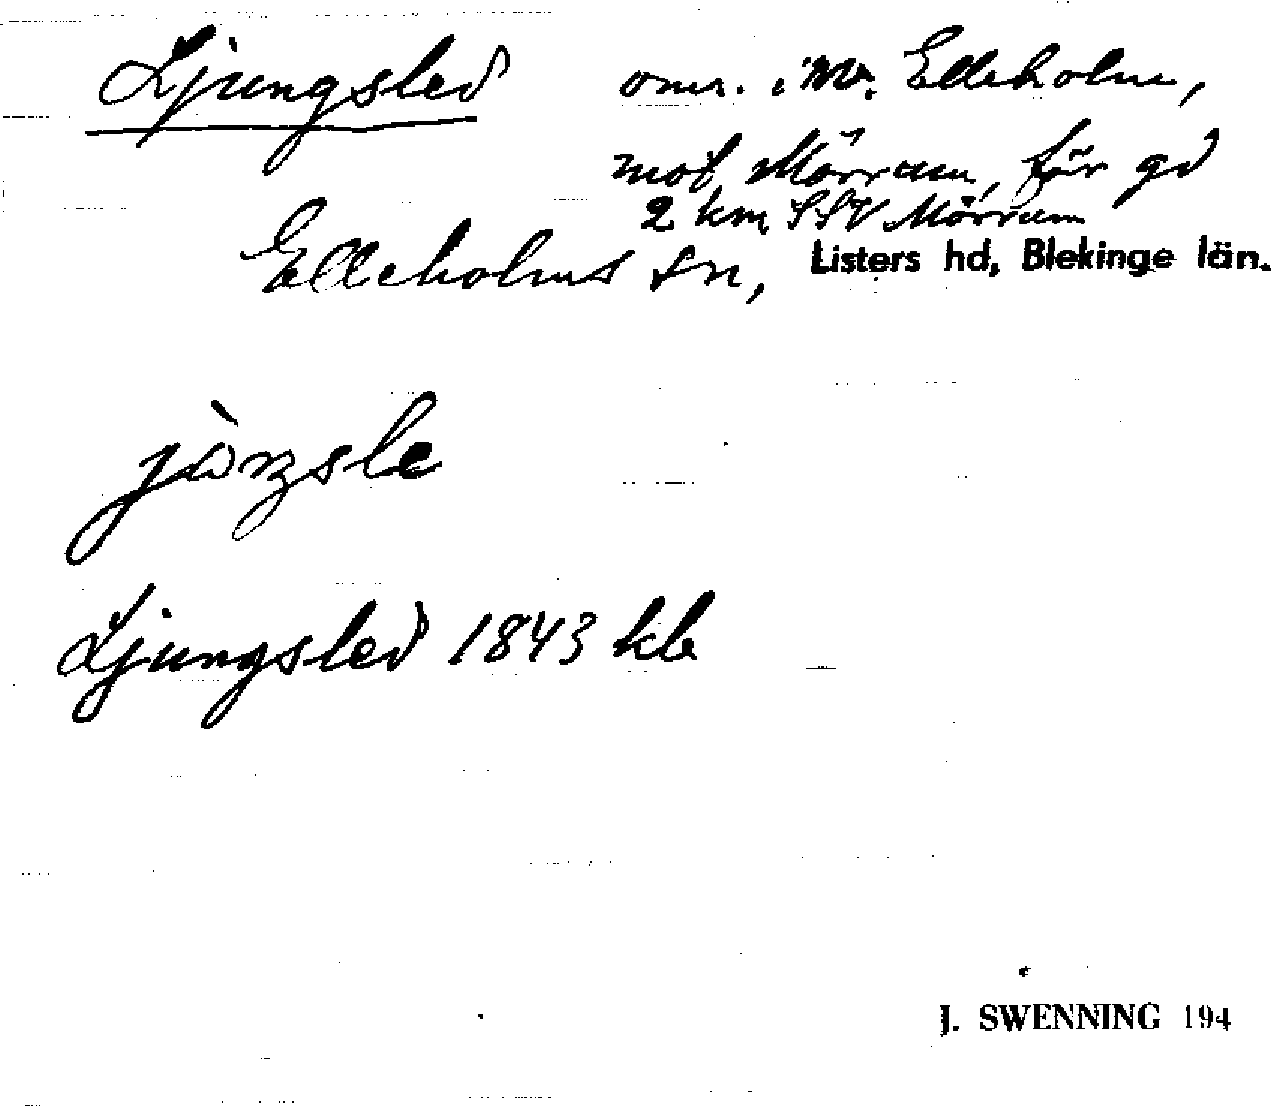 Ljungsled omr. i nv. Elleholm,
mot Mörrum, för gd
2 km SSV Mörrum
Elleholms sn, Listers hd, Blekinge län.
jòŋsle
Ljungsled 1843 kb
J. SWENNING 194